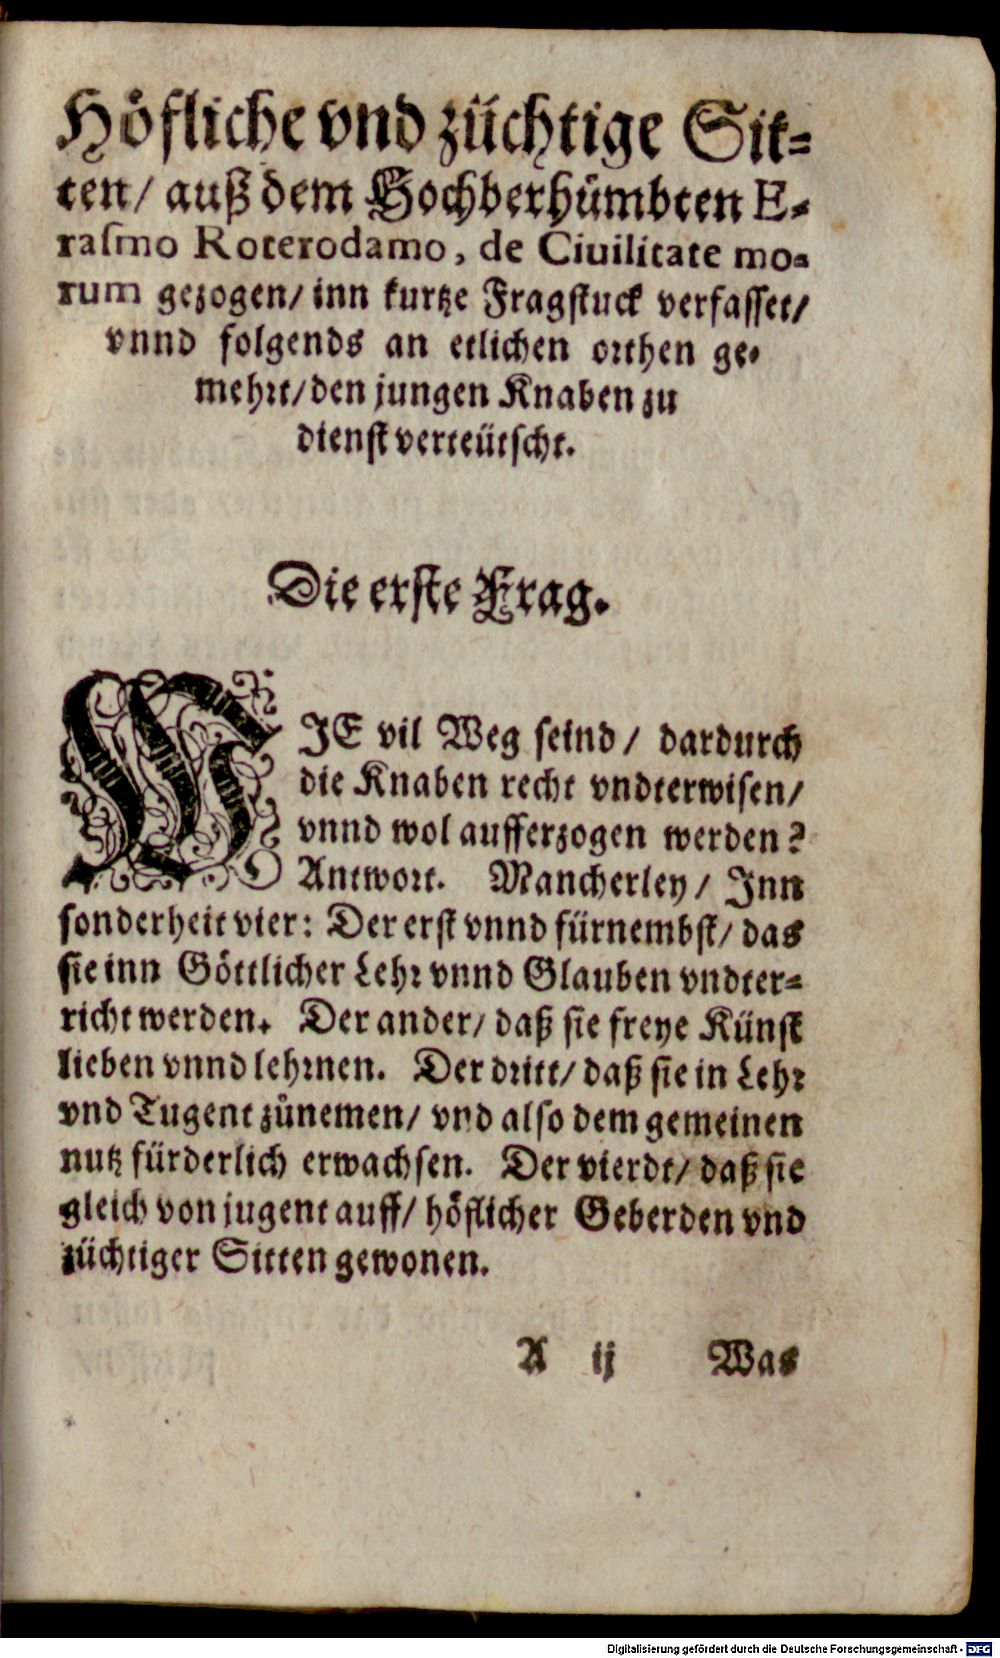 Höfliche vnd züchtige Sit-
ten/ auß dem Hochberhümbten E-
rasmo Roterodamo, de Ciuilitate mo-
rum gezogen/ inn kurtze Fragstuck verfasset/
vnnd folgends an etlichen orthen ge-
mehrt/ den jungen Knaben zu
dienst verteütscht.
Die erste Frag.
WIE vil Weg seind/ dardurch
die Knaben recht vndterwisen/
vnnd wol aufferzogen werden?
Antwort. Mancherley/ Inn
sonderheit vier: Der erst vnnd fürnembst/ das
sie inn Göttlicher Lehr vnnd Glauben vndter-
richt werden. Der ander/ daß sie freye Künst
lieben vnnd lehrnen. Der dritt/ daß sie in Lehr
vnd Tugent zůnemen/ vnd also dem gemeinen
nutz fürderlich erwachsen. Der vierdt/ daß sie
gleich von jugent auff/ höflicher Geberden vnd
züchtiger Sitten gewonen.
A ij Was
Digitalisierung gefördert durch die Deutsche Forschungsgemeinschaft - DFG